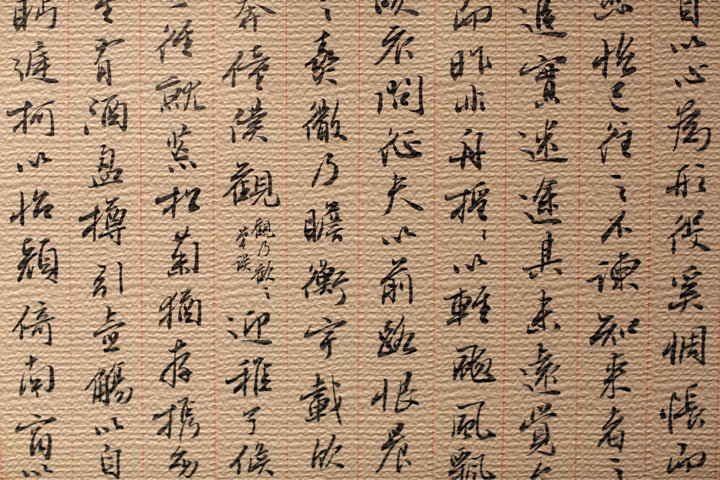 自以心為形役奚惆悵而
悲悟已往之不諫知來者之
追實迷途其未遠覺今
而昨非舟搖〻以輕颺風飄
吹衣問征夫以前路恨晨
之熹微乃瞻衡宇載欣
奔僮僕觀
觀乃歡之
筆誤
迎稚子候
徑就荒松菊猶存攜幼
有酒盈樽引壺觴以自
眄庭柯以怡顏倚南窗以